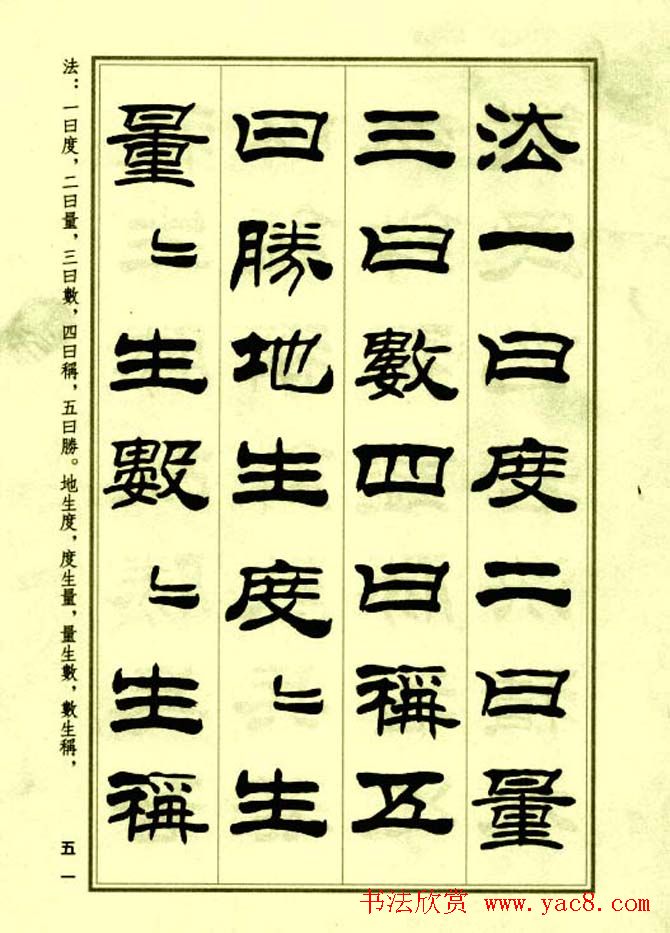 法一曰度二曰量
三曰數四曰稱五
曰勝地生度〻生
量〻生數〻生稱
法：一曰度，二曰量，三曰數，四曰稱，五曰勝。地生度，度生量，量生數，數生稱，
五一
书法欣赏 www.yac8.com